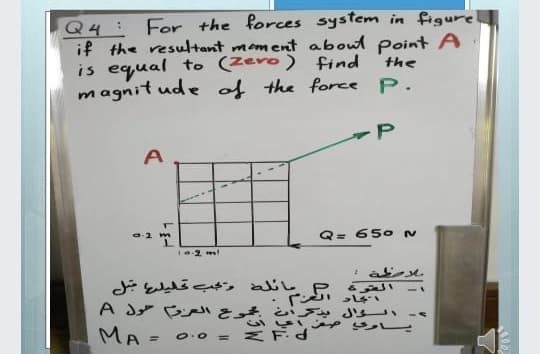 Q4 : For the forces system in figure
if the resultant moment about point A
is equal to (Zero) find the
magnitude of the force P.
P
A
0.2 m
Q= 650 N
0.2 m
ملاحظة :
١- القوة P مائلة ويجب تحليلها قبل
ايجاد العزم .
٢- السؤال يذكر ان مجموع العزوم حول A
يساوي صفر اي ان
MA = 0.0 = Σ F.d